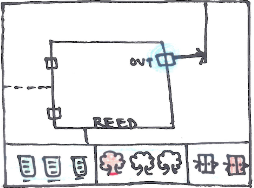 OUT
REED